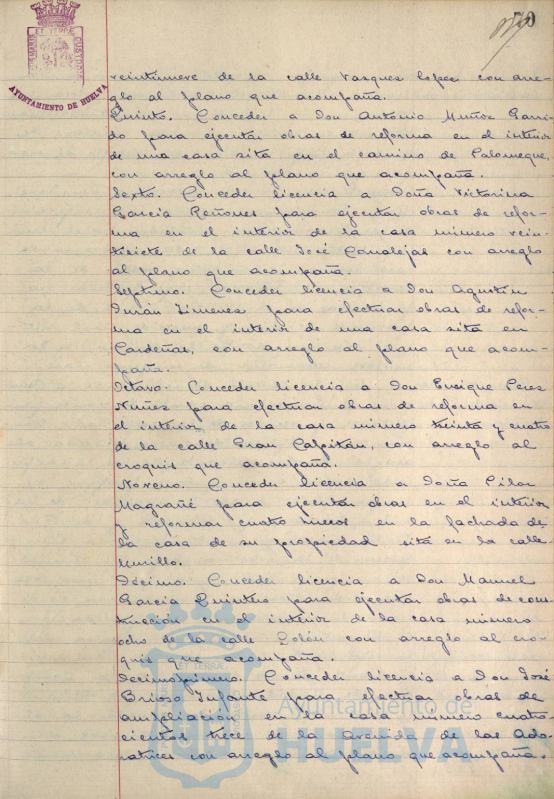 70
PORTUS MARIS ET TERRÆ CUSTODIA
AYUNTAMIENTO DE HUELVA
veintinueve de la calle Vazquez Lopez con arre-
glo al plano que acompaña.
Quinto. Conceder a Don Antonio Muñoz Garri-
do para ejecutar obras de reforma en el interior
de una casa sita en el camino de Palomeque,
con arreglo al plano que acompaña.
Sexto. Conceder licencia a Doña Victorina
Garcia Reñones para ejecutar obras de refor-
ma en el interior de la casa número vein-
tisiete de la calle José Canalejas con arreglo
al plano que acompaña.
Septimo. Conceder licencia a Don Agustin
Durán Jimenez para efectuar obras de refor-
ma en el interior de una casa sita en
Cardeñas, con arreglo al plano que acom-
paña.
Octavo. Conceder licencia a Don Enrique Perez
Nuñez para efectuar obras de reforma en
el interior de la casa número treinta y cuatro
de la calle Gran Capitán, con arreglo al
croquis que acompaña.
Noveno. Conceder licencia a Doña Pilar
Magrañé para ejecutar obras en el interior
y reformar cuatro huecos en la fachada de
la casa de su propiedad sita en la calle
Murillo.
Décimo. Conceder licencia a Don Manuel
Garcia Quintero para ejecutar obras de cons-
trucción en el interior de la casa número
ocho de la calle Colón con arreglo al cro-
quis que acompaña.
Decimoprimero. Conceder licencia a Don José
Brioso Infante para efectuar obras de
ampliación en la casa número cuatro-
cientos trece de la avenida de las Ado-
ratrices con arreglo al plano que acompaña.
Ayuntamiento de
HUELVA